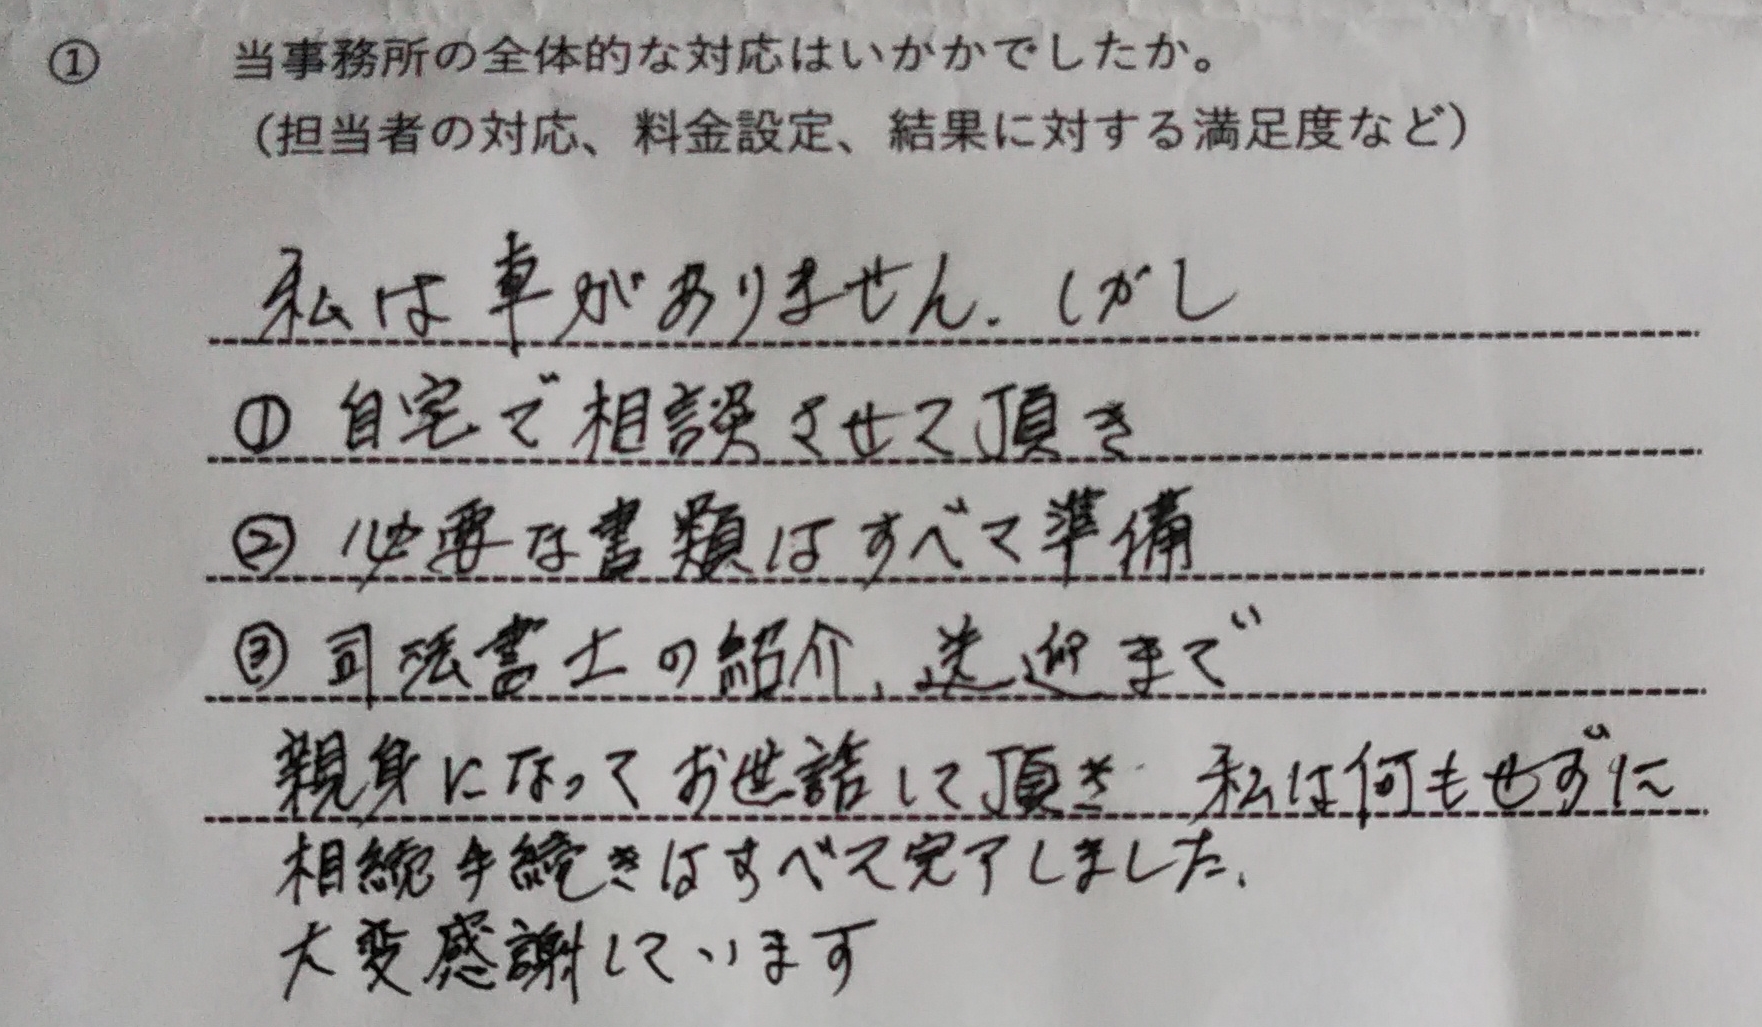 ① 当事務所の全体的な対応はいかかでしたか。
（担当者の対応、料金設定、結果に対する満足度など）
私は車がありません. しかし
① 自宅で相談させて頂き
② 必要な書類はすべて準備
③ 司法書士の紹介、送迎まで
親身になってお世話して頂き 私は何もせずに
相続手続きはすべて完了しました、
大変感謝しています